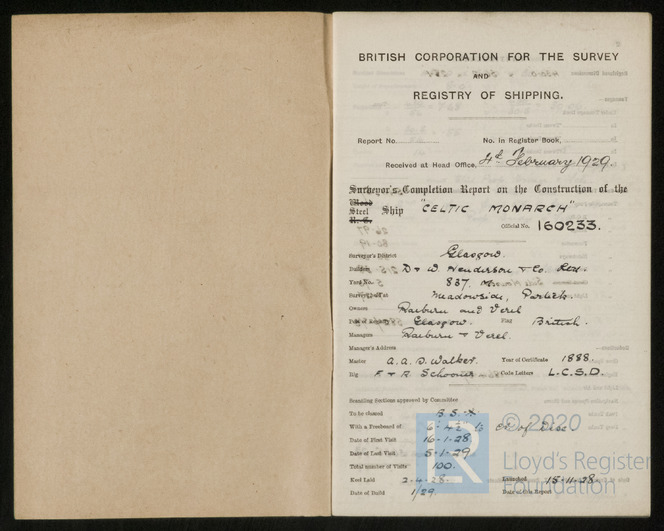 BRITISH CORPORATION FOR THE SURVEY
AND
REGISTRY OF SHIPPING.
Report No. No. in Register Book,
Received at Head Office, 4th February 1929.
Surveyor's Completion Report on the Construction of the
Wood
Steel Ship "CELTIC MONARCH"
R. C.
Official No. 160233.
Surveyor's District Glasgow.
Builders D & W. Henderson & Co. Ltd.
Yard No. 837.
Surveyed at Meadowside, Partick.
Owners Raeburn and Verel
Port of Registry Glasgow. Flag British.
Managers Raeburn & Verel.
Manager's Address
Master A. A. D. Walker. Year of Certificate 1888.
Rig F & A Schooner Code Letters L.C.S.D.
Scantling Sections approved by Committee
To be classed B.S.*
With a Freeboard of 6'-4½ to Cr. of Disc
Date of First Visit 16-1-28.
Date of Last Visit 5-1-29
Total number of Visits 100.
Keel Laid 2-4-28. Launched 15-11-28
Date of Build 1/29. Date of this Report
© 2020
Lloyd's Register
Foundation
LR